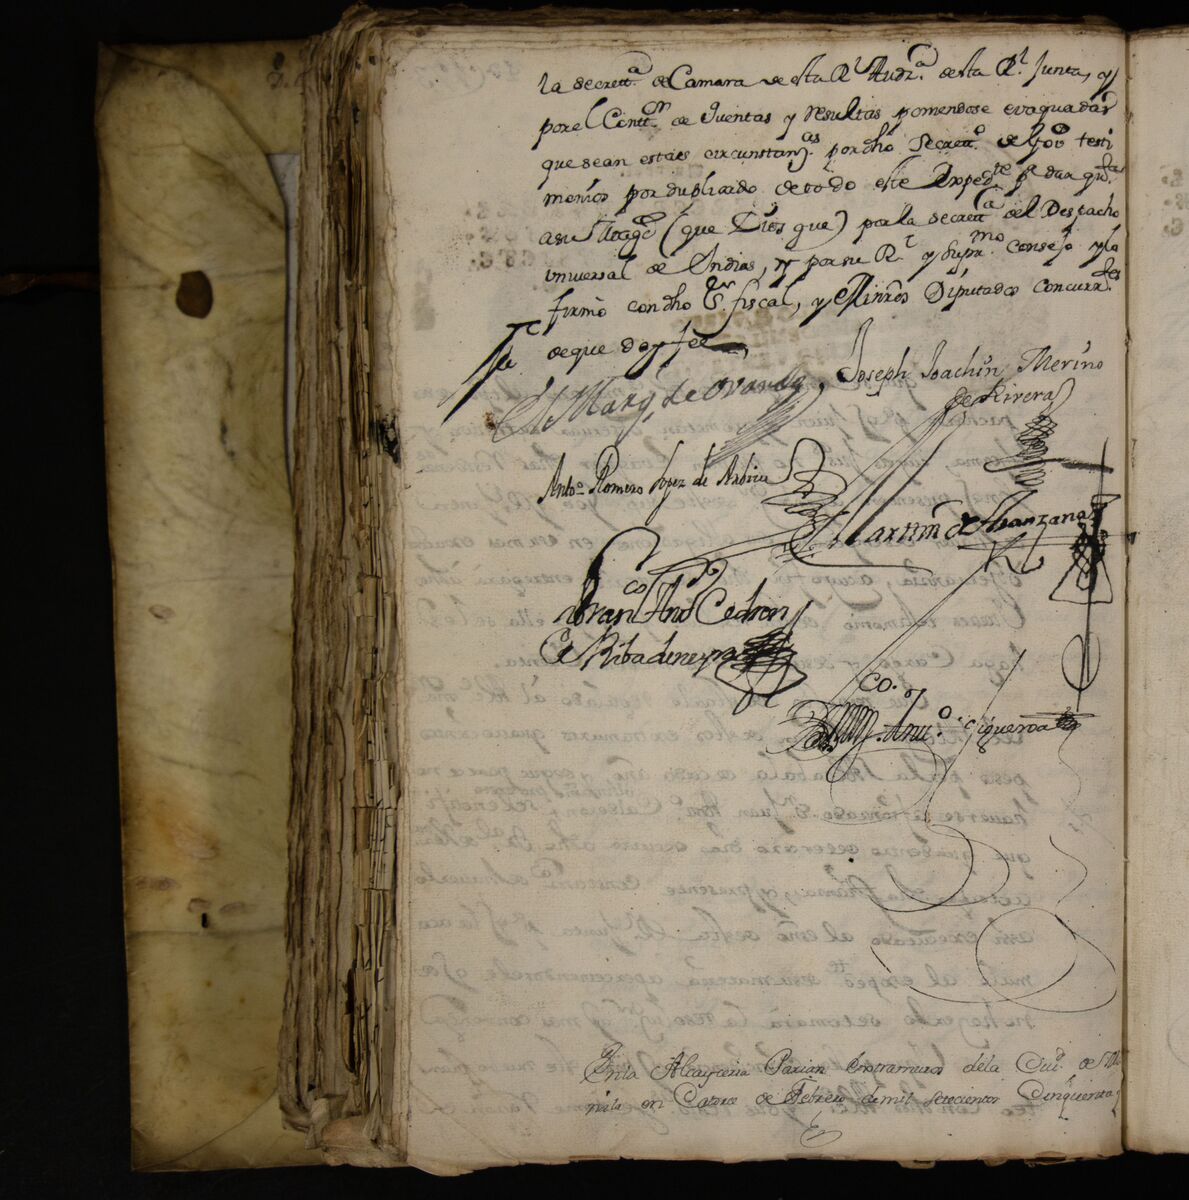 la Secrett.ª de Camara de esta R.l Audz.ª de sta R.l Junta, y
por el Contt.or de Quentas y resultas poniendose evaquadas
que sean estas circunstanz.as por dho Secrett.o de Gov.o testi
monios por duplicado de todo este Expedte p.ª dar qta
a su Mag.d (que Dios gue) por la Secrett.ª del Despacho
universal de Indias, y por su R.l y Supr.mo Consejo y lo
firmò con dho S.r fiscal, y Minros Diputados Concurr.tes
de que doy fee
El Marq.s de Ovando,
Joseph Joachin Merino
de Rivera
Anto.o Romero Lopez de Arbizu
Martin de Aranzana
Fran.co Ant.o Cedron
de Ribadeneyra
Fran.co Anto.o Figueroa
En la Alcayseria Parian Extramuros de la Ciud. de Ma
nila en Catorce de Febrero de mil setecientos Cinquenta,